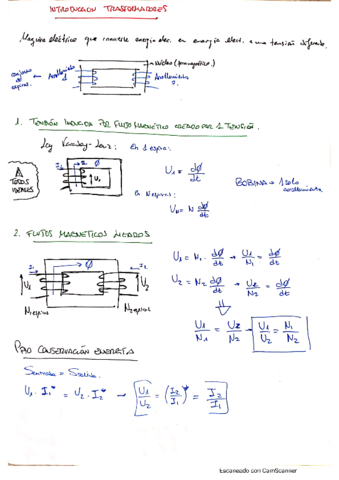 INTRODUCCION TRASFORMADORES
Maquina eléctrica que convierte energia elec. en energia eléct. a una tensión diferente.
Núcleo (ferromagnético.)
conjunto de espiras. ← Arrollamiento 1
Arrollamiento 2.
1. TENSIÓN INDUCIDA POR FLUJO MAGNÉTICO CREADO POR 1 TENSIÓN.
Ley Faraday-Lenz: En 1 espira:
TODOS IDEALES
I1 ∅ U1
U1 = d∅/dt
BOBINA → 1 solo arrollamiento
En N espiras:
UN = N d∅/dt
2. FLUJOS MAGNETICOS LIGADOS
I1 ∅ I2
U1 U2
N1 espiras N2 espiras
U1 = N1 · d∅/dt → U1/N1 = d∅/dt
U2 = N2 d∅/dt → U2/N2 = d∅/dt
⇓
U1/N1 = U2/N2 → U1/U2 = N1/N2
PPIO CONSERVACIÓN ENERGÍA
Sentrada = Ssalida.
U1 · I1* = U2 · I2* → U1/U2 = (I2/I1)* = I2/I1
Escaneado con CamScanner